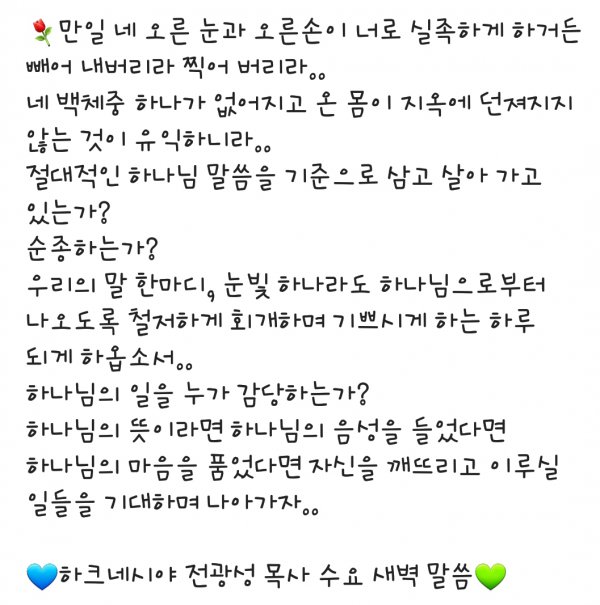 🌹만일 네 오른 눈과 오른손이 너로 실족하게 하거든
빼어 내버리라 찍어 버리라。。
네 백체중 하나가 없어지고 온 몸이 지옥에 던져지지
않는 것이 유익하니라。。
절대적인 하나님 말씀을 기준으로 삼고 살아 가고
있는가?
순종하는가?
우리의 말 한마디, 눈빛 하나라도 하나님으로부터
나오도록 철저하게 회개하며 기쁘시게 하는 하루
되게 하옵소서。。
하나님의 일을 누가 감당하는가?
하나님의 뜻이라면 하나님의 음성을 들었다면
하나님의 마음을 품었다면 자신을 깨뜨리고 이루실
일들을 기대하며 나아가자。。
💙하크네시야 전광성 목사 수요 새벽 말씀💚